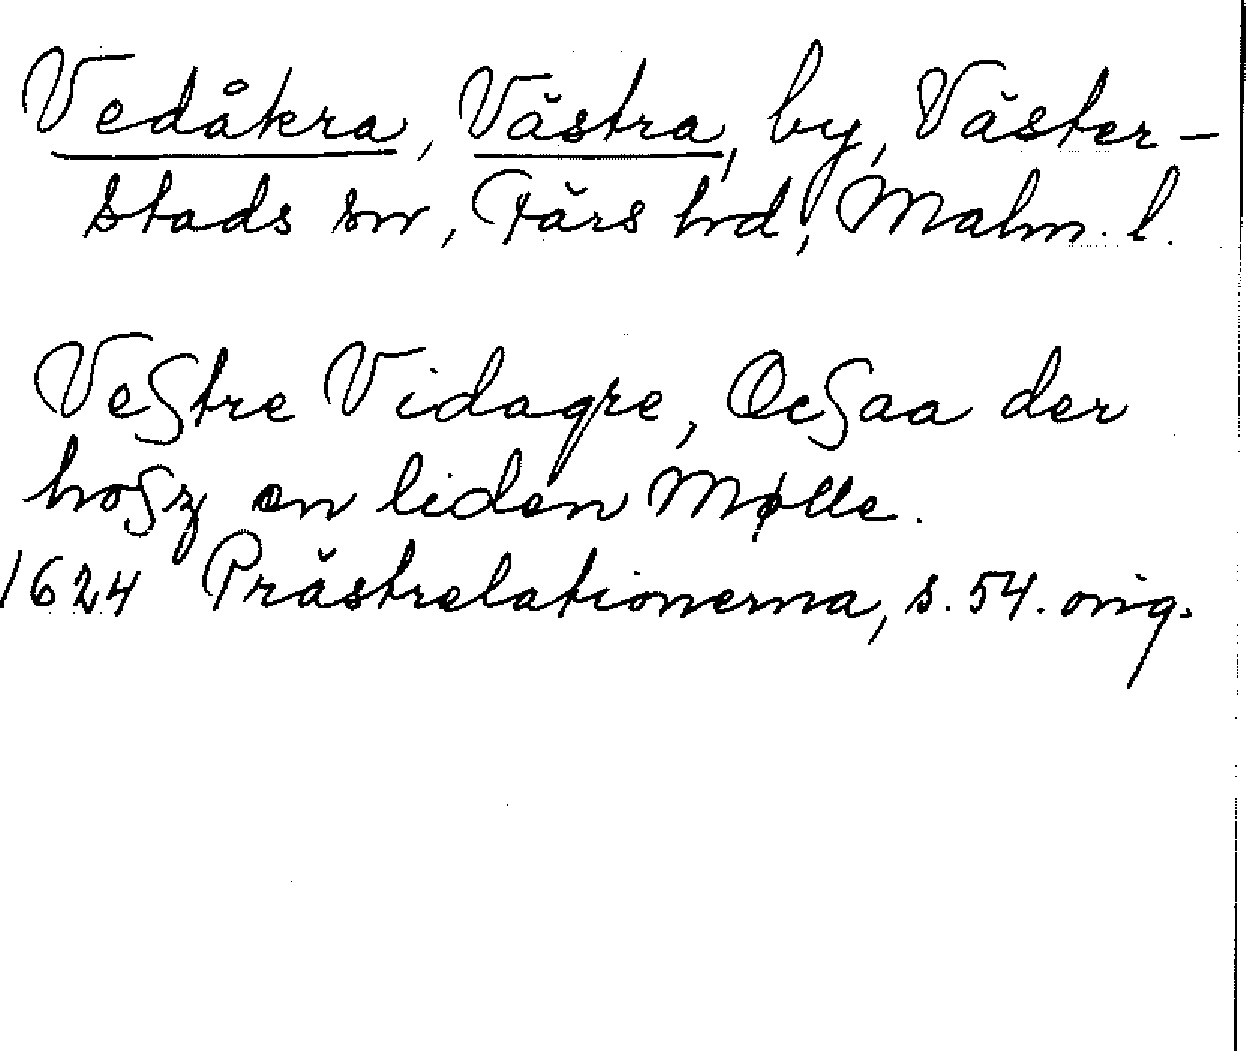 Vedåkra, Västra, by, Väster-
stads sn, Färs hd, Malm. l.
Vesstre Vidagre, Ocsaa der
hosz en liden Mølle.
1624 Prästrelationerna, s. 54. orig.